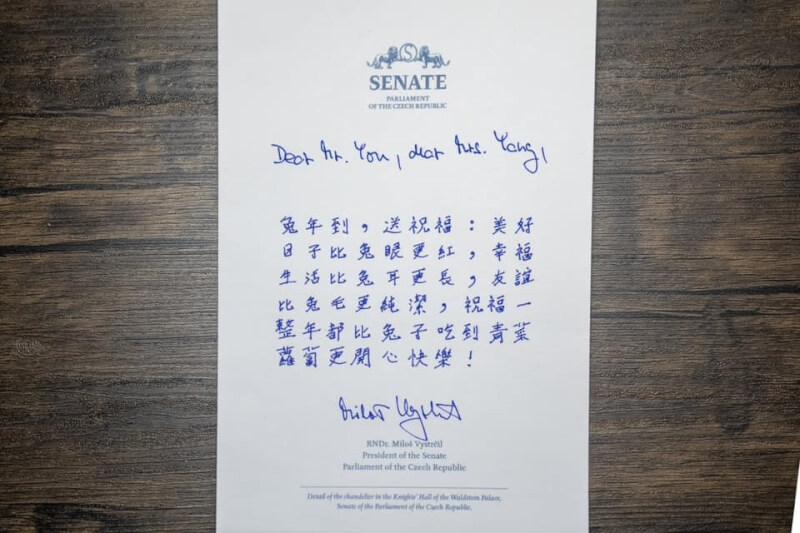 SENATE
PARLIAMENT
OF THE CZECH REPUBLIC
Dear Mr. You, dear Mrs. Yang,
兔年到，送祝福：美好
日子比兔眼更紅，幸福
生活比兔耳更長，友誼
比兔毛更純潔，祝福一
整年都比兔子吃到青菜
蘿蔔更開心快樂！
RNDr. Miloš Vystrčil
President of the Senate
Parliament of the Czech Republic
Detail of the chandelier in the Knights' Hall of the Waldstein Palace,
Senate of the Parliament of the Czech Republic.